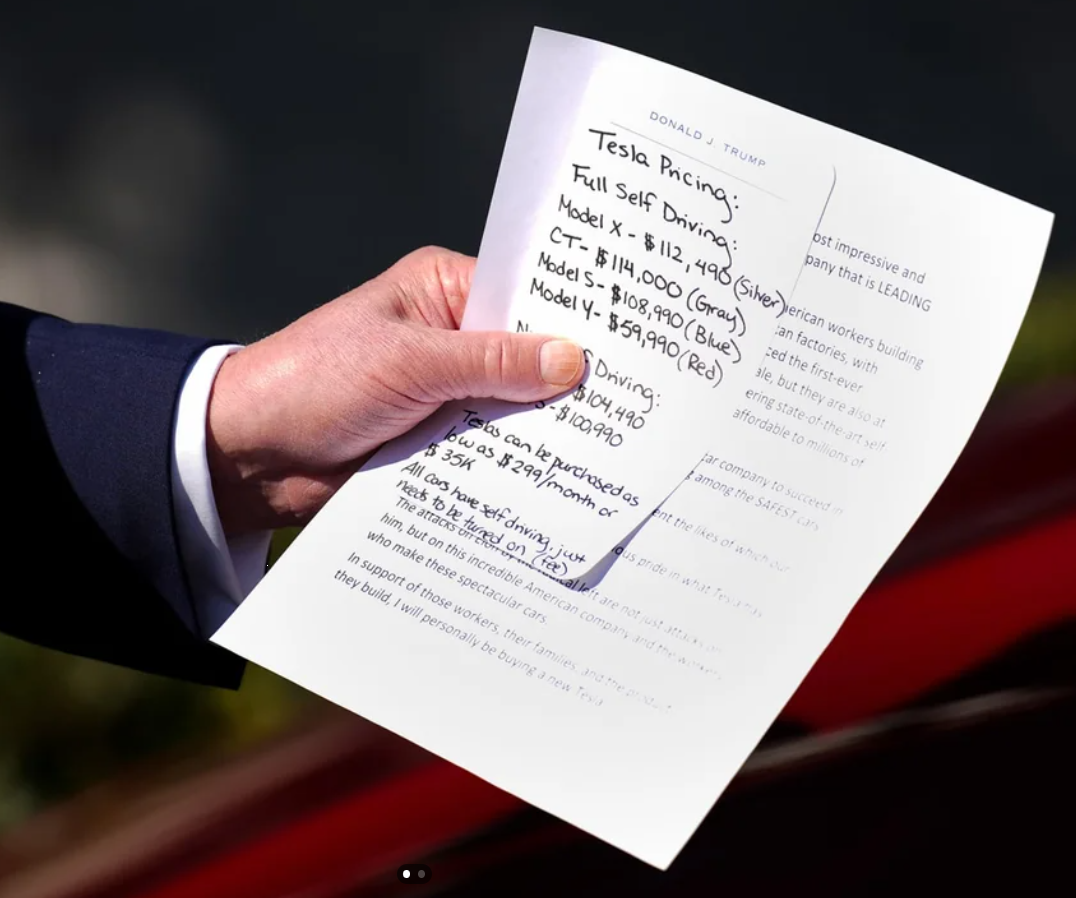 DONALD J. TRUMP
Tesla Pricing:
Full Self Driving:
Model X - $112,490 (Silver)
CT - $114,000 (Gray)
Model S - $108,990 (Blue)
Model Y - $59,990 (Red)
Driving:
$104,490
- $100,990
Teslas can be purchased as
low as $299/month or
$35K
All cars have self driving, just
needs to be turned on (fee)
ost impressive and
pany that is LEADING
erican workers building
an factories, with
ced the first-ever
ale, but they are also at
ering state-of-the-art self
affordable to millions of
ar company to succeed in
among the SAFEST cars
ent the likes of which our
ous pride in what Tesla has
The attacks on left are not just attacks on
him, but on this incredible American company and the workers
who make these spectacular cars.
In support of those workers, their families, and the product
they build, I will personally be buying a new Tesla